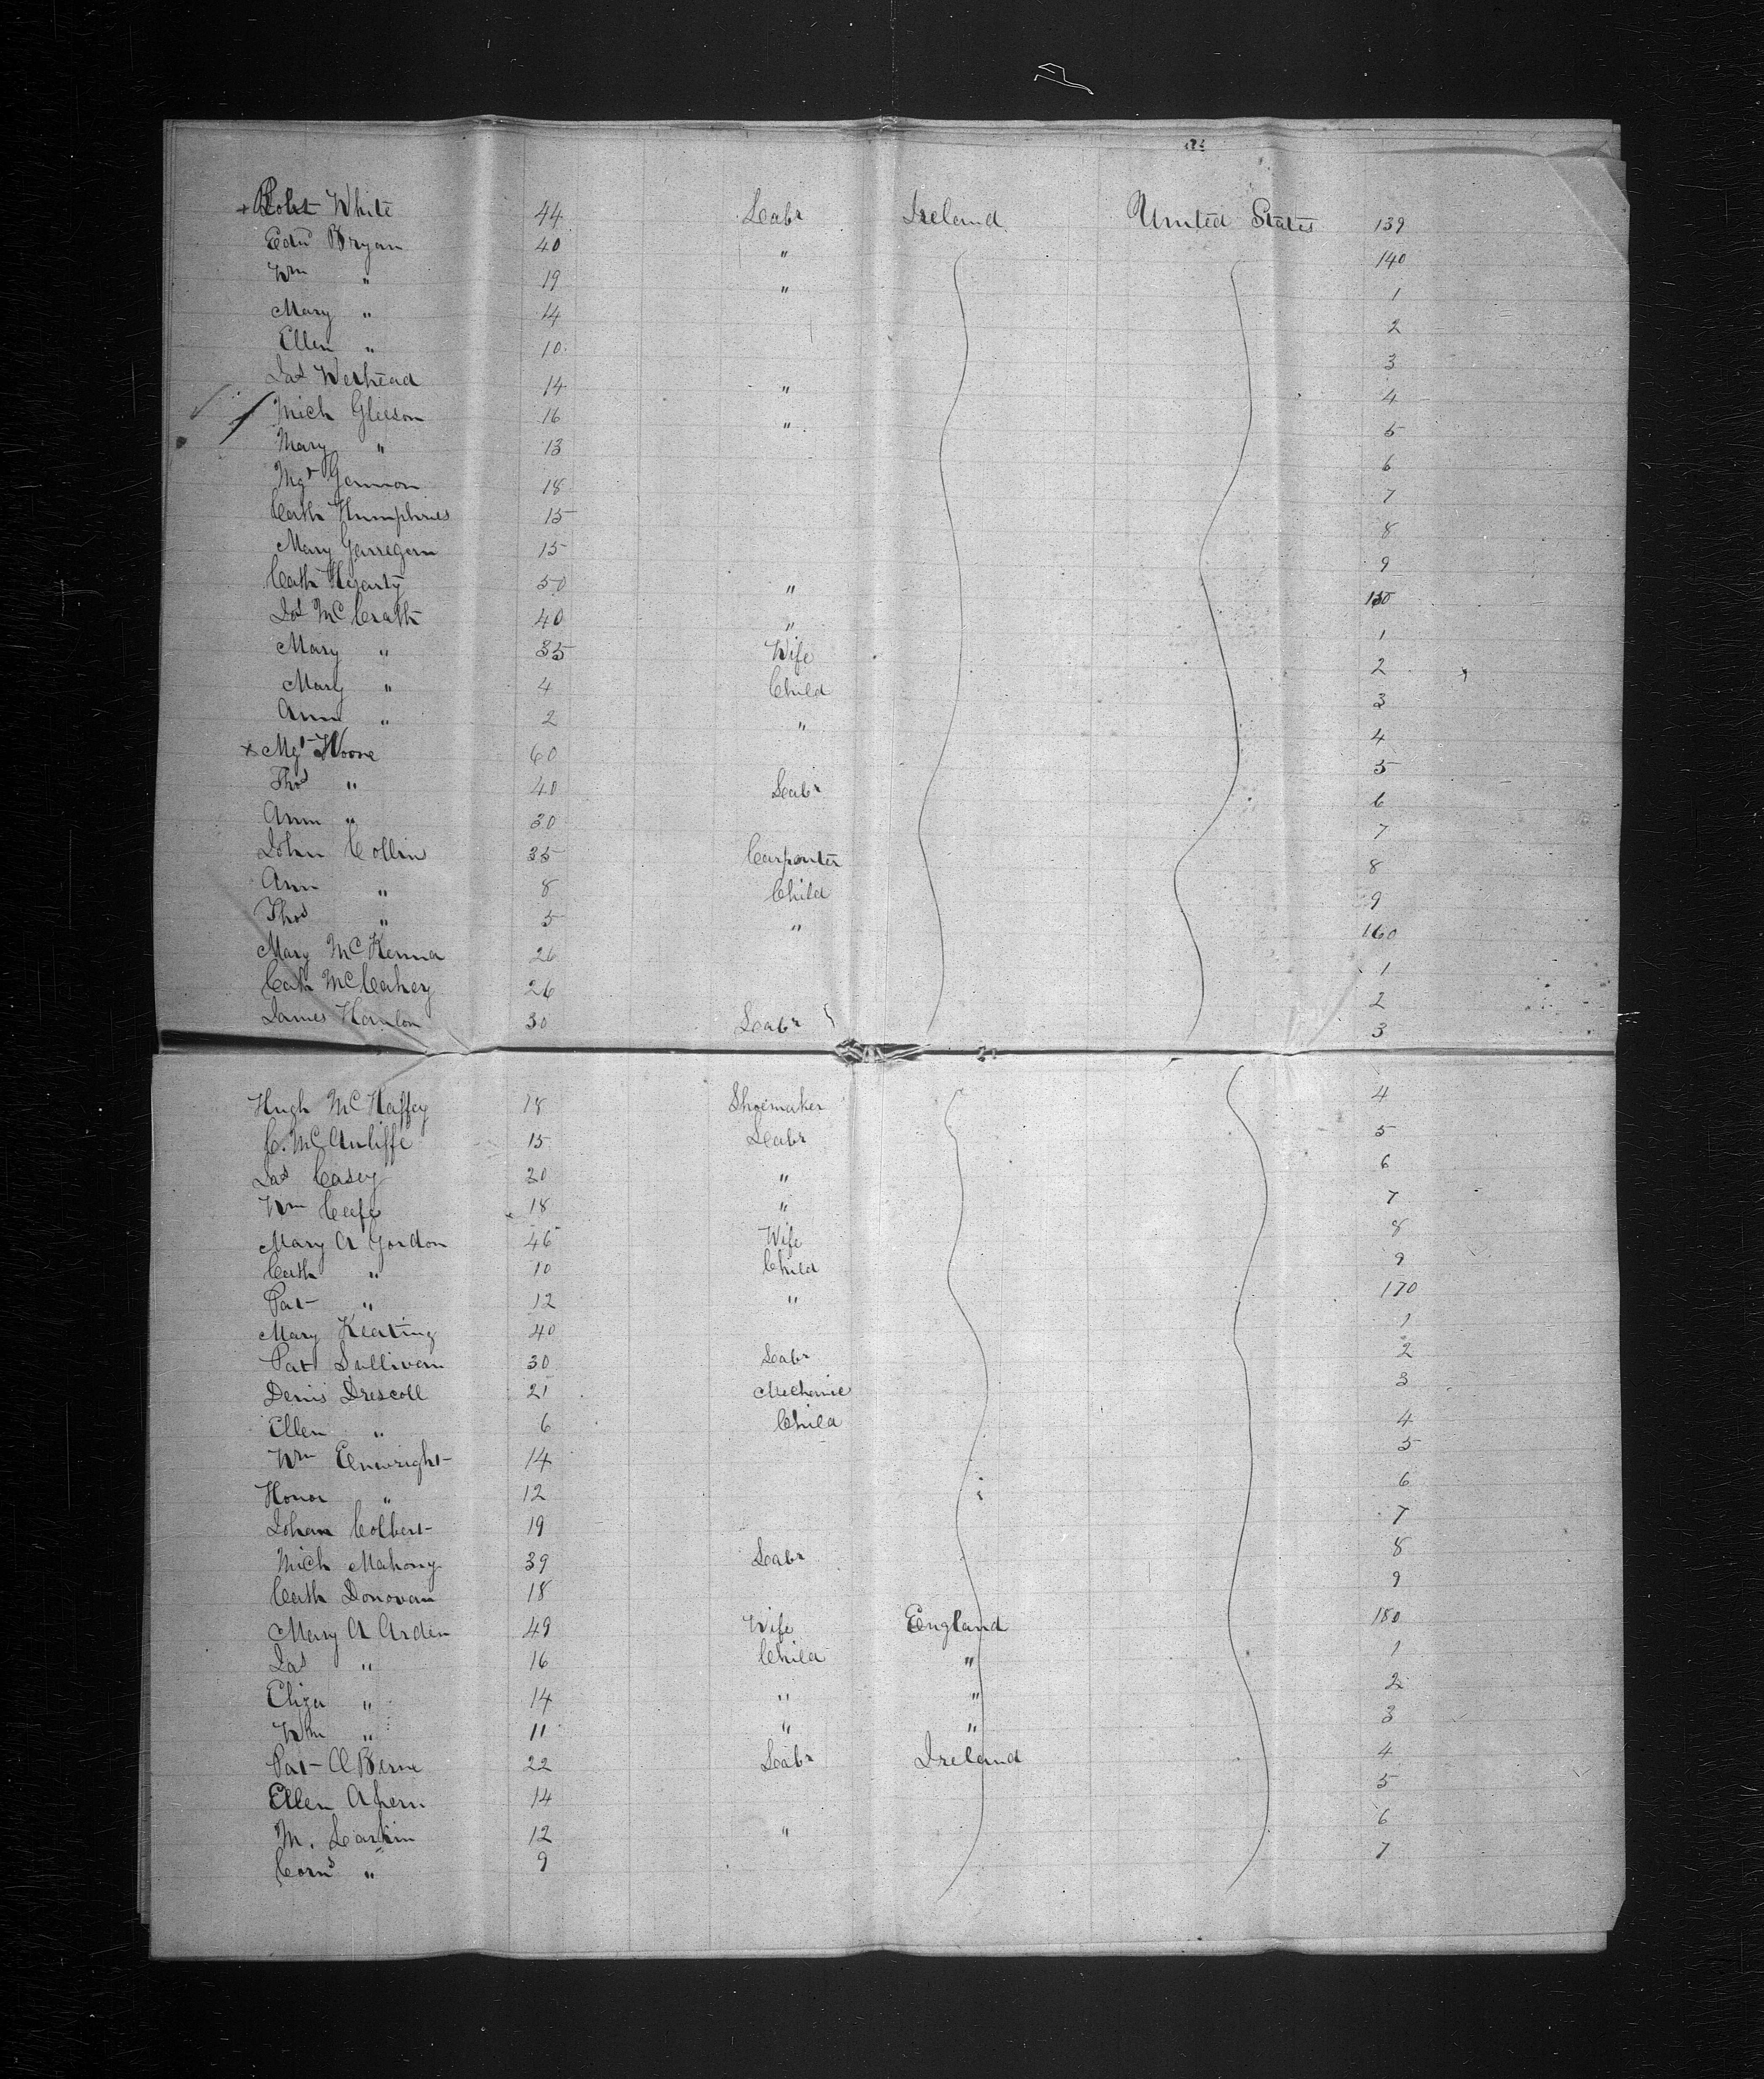 + Robt White 44 Labr Ireland United States 139
Edwd Bryan 40 " 140
Wm " 19 " 1
Mary " 14 2
Ellen " 10 3
Jas 14 " 4
Mich Gleeson 16 " 5
Mary " 13 6
Mgt Gannon 18 7
Cath Humphries 15 8
Mary 15 9
Cath 50 " 150
Jas McCrath 40 " 1
Mary " 35 Wife 2
Mary " 4 Child 3
Ann " 2 " 4
x Mgt 60 5
Thos " 40 Labr 6
Ann " 30 7
John Collins 35 Carpenter 8
Ann " 8 Child 9
Thos " 5 " 160
Mary McKenna 26 1
Cath McCahey 26 2
James Hanlon 30 Labr 3
Hugh McHaffey 18 Shoemaker 4
C. McAuliffe 15 Labr 5
Jas Casey 20 " 6
Wm 18 " 7
Mary A Gordon 46 Wife 8
Cath " 10 Child 9
Pat " 12 " 170
Mary Keating 40 1
Pat Sullivan 30 Labr 2
Denis Drescoll 21 Mechanic 3
Ellen " 6 Child 4
Wm Enwright 14 5
Honor " 12 6
Johan Colbert 19 7
Mich Mahony 39 Labr 8
Cath Donovan 18 9
Mary A Arden 49 Wife England 180
Jas " 16 Child " 1
Eliza " 14 " " 2
Wm " 11 " " 3
Pat O Birne 22 Labr Ireland 4
Ellen Ahern 14 5
M. Larkin 12 " 6
Corns " 9 7